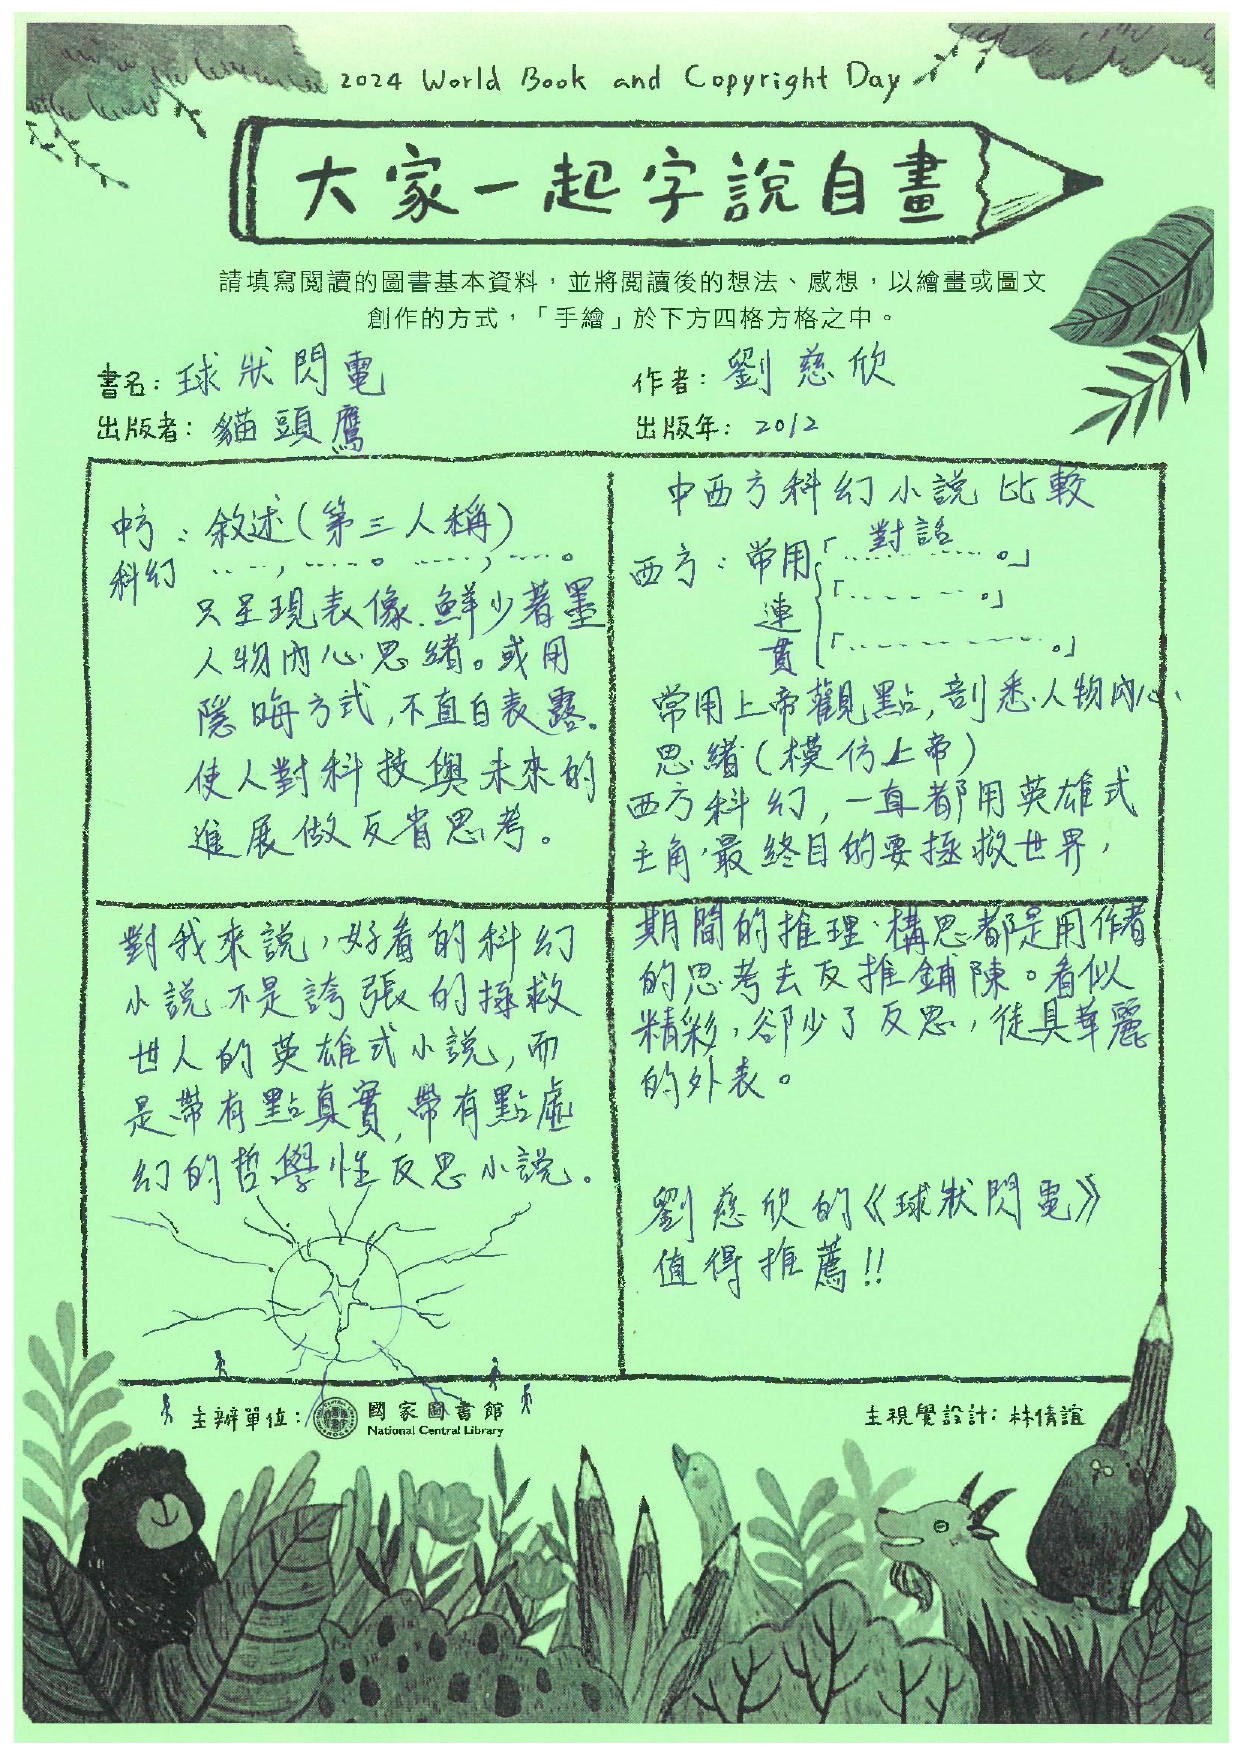 2024 World Book and Copyright Day
大家一起字說自畫
請填寫閱讀的圖書基本資料，並將閱讀後的想法、感想，以繪畫或圖文
創作的方式，「手繪」於下方四格方格之中。
書名：球狀閃電
作者：劉慈欣
出版者：貓頭鷹
出版年：2012
中西方科幻小說比較
西方：常用「……對話……。」
連貫「……。」
「……。」
常用上帝觀點，剖悉人物內心、
思緒（模仿上帝）
西方科幻，一直都用英雄式
主角，最終目的要拯救世界，
期間的推理、構思都是用作者
的思考去反推鋪陳。看似
精彩，卻少了反思，徒具華麗
的外表。
中方科幻：敘述（第三人稱）
……，……。……，……。
只呈現表像、鮮少著墨
人物內心思緒。或用
隱晦方式，不直白表露。
使人對科技與未來的
進展做反省思考。
對我來說，好看的科幻
小說不是誇張的拯救
世人的英雄式小說，而
是帶有點真實，帶有點虛
幻的哲學性反思小說。
劉慈欣的《球狀閃電》
值得推薦!!
主辦單位：國家圖書館
National Central Library
主視覺設計：林倩誼